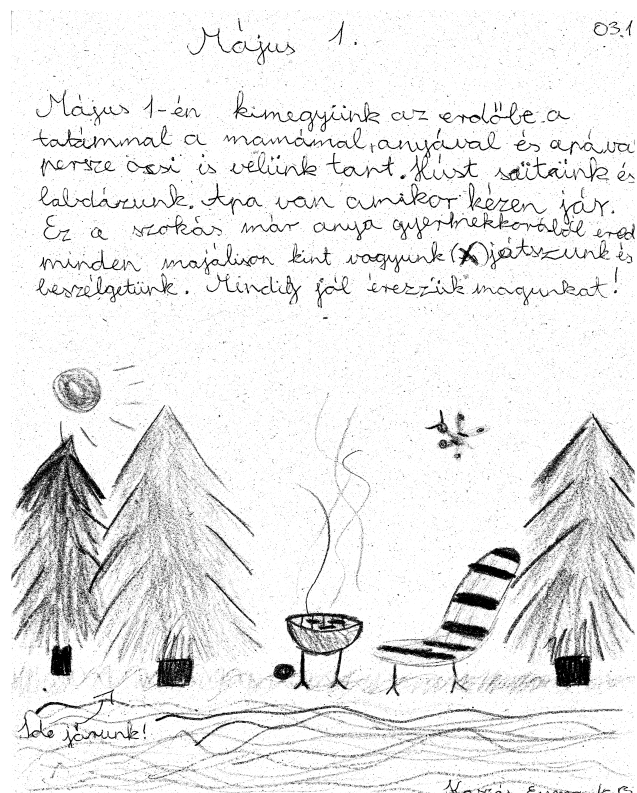 03.1
Május 1.
Május 1-én kimegyünk az erdőbe a
tatámmal a mamámal, anyával és apáva
persze öcsi is velünk tart. Húst sütünk és
labdázunk. Apa van amikor kézen jár.
Ez a szokás már anya gyermekkorából ered
minden majálison kint vagyunk (x) játszunk és
beszélgetünk. Mindig jól érezzük magunkat!
Ide járunk!